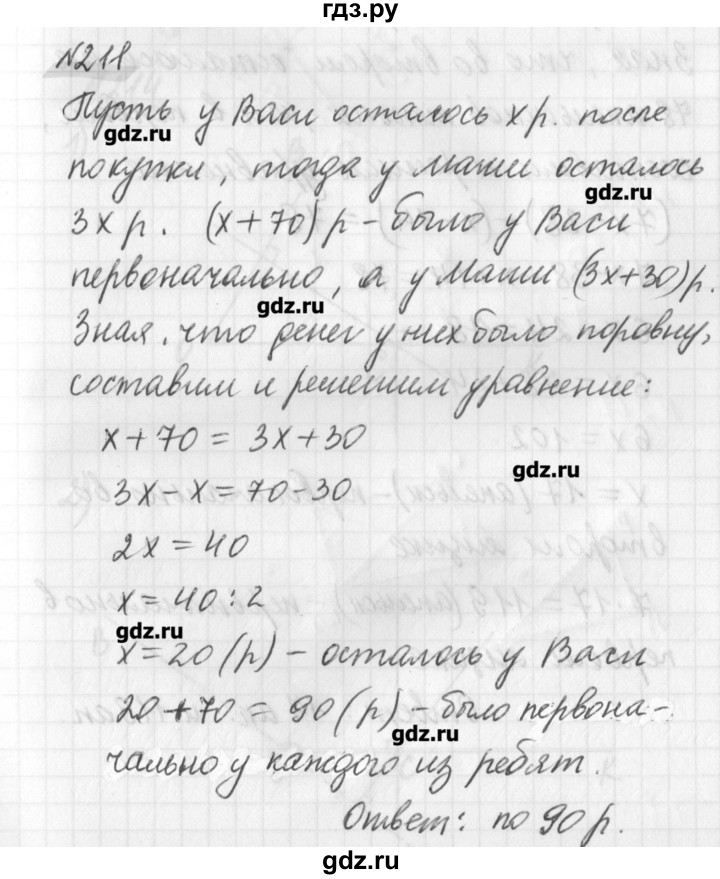 гдз.ру
№211
Пусть у Васи осталось x р. после
gdz.ru
покупки, тогда у Маши осталось
gdz.ru
3x р. (x+70) р – было у Васи
первоначально, а у Маши (3x+30) р.
gdz.ru
Зная, что денег у них было поровну,
составим и решим уравнение:
x + 70 = 3x + 30
gdz.ru
3x - x = 70 - 30
2x = 40
x = 40 : 2
gdz.ru
x = 20 (р) – осталось у Васи
20 + 70 = 90 (р) – было первона-
gdz.ru
чально у каждого из ребят.
Ответ: по 90 р.
gdz.ru